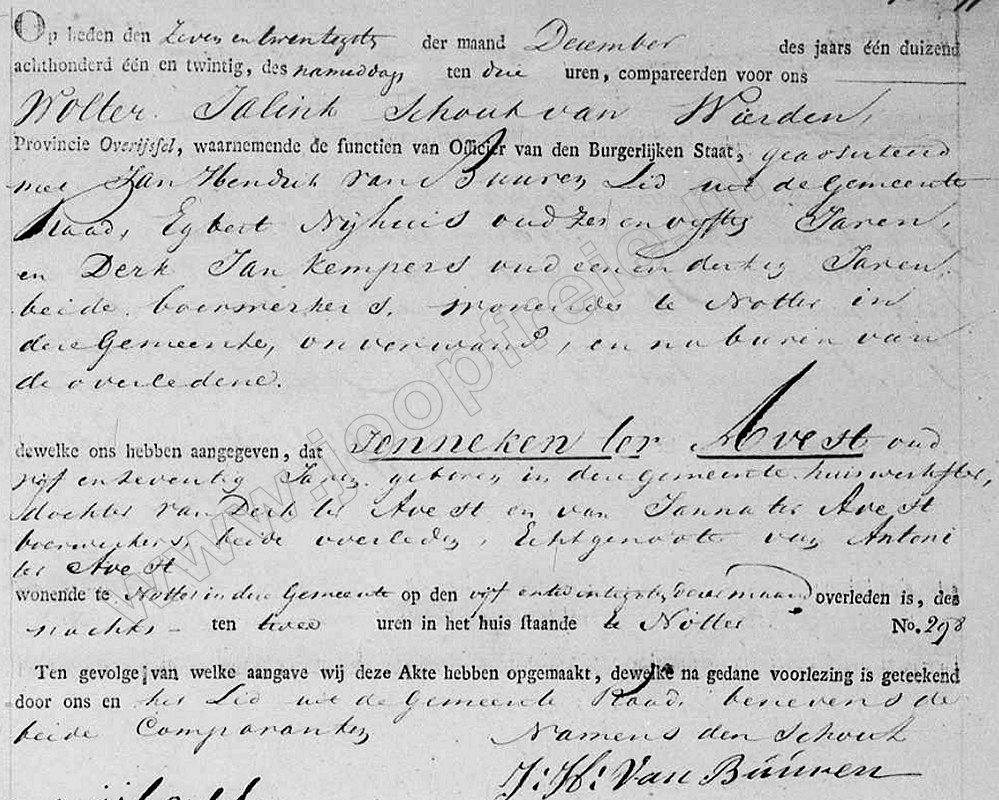 Op heden den Zeven en twentigste der maand December des jaars één duizend
achthonderd één en twintig, des namiddags ten drie uren, compareerden voor ons
Wolter Jalink Schout van Wierden,
Provincie Overijsſel, waarnemende de functien van Officier van den Burgerlijken Staat, geassisteerd
met Jan Hendrik van Buuren Lid uit de Gemeente
Raad, Egbert Nijhuis oud zes en vyftig Jaren,
en Derk Jan Kempers oud een en dertig Jaren
beide boerwerkers, wonendes te Notter in
deze Gemeente, onverwand, en naburen van
de overledene.
dewelke ons hebben aangegeven, dat Jenneken ter Avest oud
vijf en zeventig Jaren geboren in deze Gemeente huiswerkster,
dochter van Derk ter Avest en van Janna ter Avest
boerwerkers, beide overleden, Echtgenoote van Antoni
ter Avest
wonende te Notter in deze Gemeente op den vijf en twintigste dezer maand overleden is, des
nachts ten twee uren in het huis ſtaande te Notter No. 298
Ten gevolge van welke aangave wij deze Akte hebben opgemaakt, dewelke na gedane voorlezing is geteekend
door ons en het Lid uit de Gemeente Raad, benevens de
beide Comparanten
Namens den Schout
J: H: Van Buuren
www.joopfreie.nl